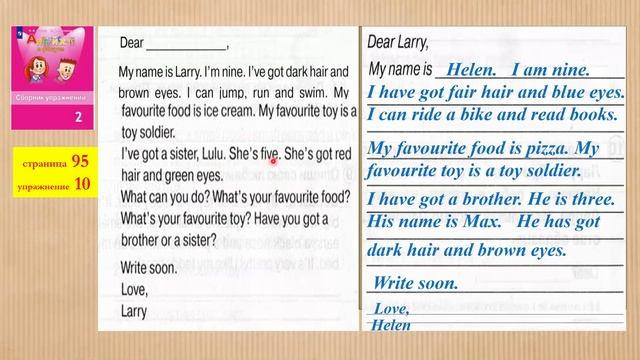 Английский
в фокусе
Сборник упражнений
2
страница 95
упражнение 10
Dear ____________,
My name is Larry. I'm nine. I've got dark hair and
brown eyes. I can jump, run and swim. My
favourite food is ice cream. My favourite toy is a
toy soldier.
I've got a sister, Lulu. She's five. She's got red
hair and green eyes.
What can you do? What's your favourite food?
What's your favourite toy? Have you got a
brother or a sister?
Write soon.
Love,
Larry
Dear Larry,
My name is Helen. I am nine.
I have got fair hair and blue eyes.
I can ride a bike and read books.
My favourite food is pizza. My
favourite toy is a toy soldier.
I have got a brother. He is three.
His name is Max. He has got
dark hair and brown eyes.
Write soon.
Love,
Helen